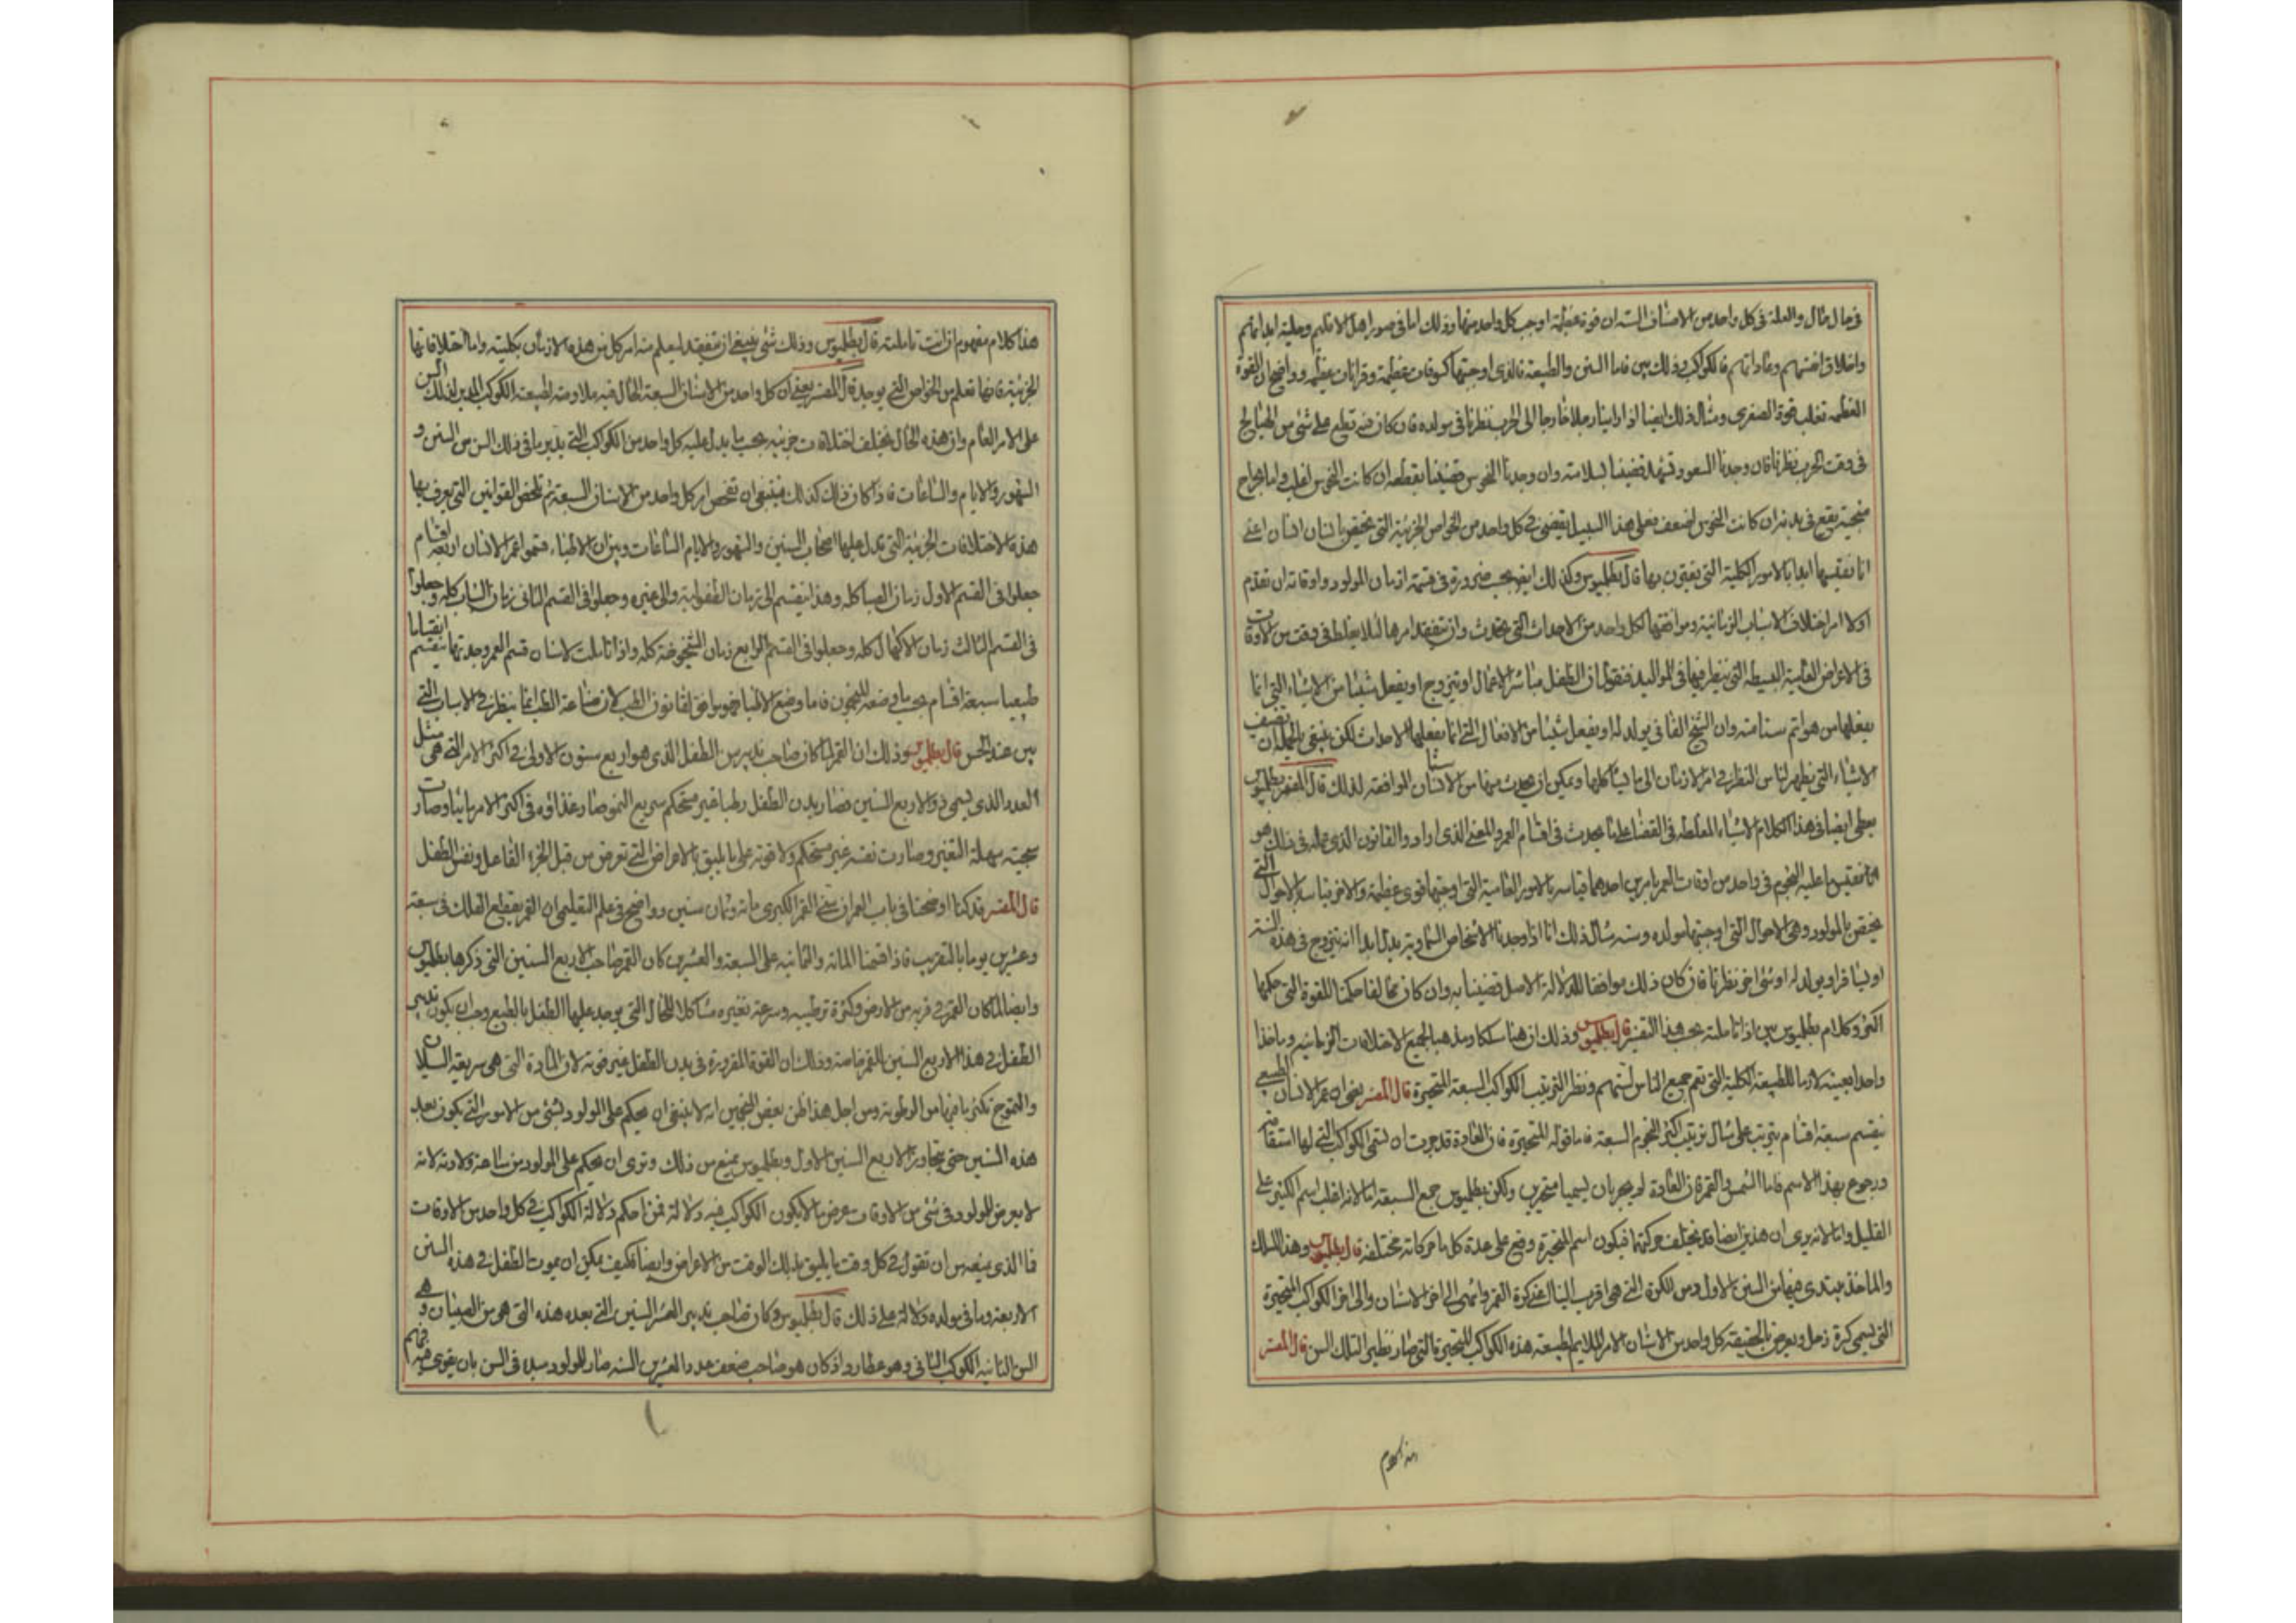 في حال مثال والعلة في كل واحد من الاصناف الستة ان قوة عظيمة اوجبت كل واحد منها وذلك اما في صور اهل الاقاليم وحلية ابدانهم
واخلاق انفسهم وعاداتهم فالكواكب وذلك بين فاما السنن والطبيعة فالذي اوجبتها كسوفات عظيمة وقرانات عظيمة وواضح ان القوة
العظمى تغلب قوة الصغرى ومثال ذلك ايضا اذا راينا رجلا خارجا الى الحرب نظرنا في مولده فان كان قطع على شئ من
في وقت الحرب نظرنا فان وجدنا السعود قضينا بسلامته وان وجدنا النحوس قضينا بقطعه ان كانت النحوس اغلب واما بجراح
تقع في بدنه ان كانت النحوس اضعف فعلى هذا السبيل يقضى في كل واحد من الخواص الجزئية التي تختص بانسان انسان اعني
انا نقيسها ابدا بالامور الكلية التي يقترن بها قال بطلميوس وكذلك ايضا يجب ضرورة في قسمة ازمان المولود واوقاته ان نقدم
اولا امر اختلاف الاسباب الزمانية وموافقتها لكل واحد من الاحداث التي تحدث وان نتفقد امرها لئلا يغلط في وقت من الاوقات
في الاعراض العامية البسيطة التي ينظر فيها في المواليد فنقول ان الطفل مباشر الاعمال او يتزوج او يفعل شيئا من الاشياء التي انما
يفعلها من هو اتم سنا منه وان الشيخ الفاني يولد له او يفعل شيئا من الافعال التي انما يفعلها الاحداث لكن ينبغي بالجملة ان نضيف
الاشياء التي يظهر لناس النظر في امر الازمان الى ما يشاكلها ويمكن ان يحدث منها من الاسنان الموافقة لذلك قال المفسر بطلميوس
يعطي ايضا في هذا الكلام الاشياء المغلطة في القضاء على ما يحدث في اقسام العمر والمعنى الذي اراد والقانون الذي عمله في ذلك هو
ان نقيس ما عليه النجوم في واحد من اوقات العمر بامرين احدهما قياسه بالامور العامية التي اوجبتها قوى عظيمة والاخر قياسه بالاحوال التي
تختص بالمولود وهي الاحوال التي اوجبتها مولده وسنه مثال ذلك انا اذا وجدنا الاشخاص السماوية يدل ابدا انه يتزوج في هذه السنة
او يسافر او يولد له او شئ اخر نظرنا فان كان ذلك موافقا لدلالة الاصل قضينا به وان كان مخالفا حكمنا للقوة التي حكمها
اكثر وكلام بطلميوس بين اذا تاملته بحسب هذا التفسير قال بطلميوس وذلك ان هنا مسلكا ومذهبا لجميع الاختلافات الزمانية وماخذا
واحدا بعينه لازما للطبيعة الكلية التي تعم جميع الناس بسنهم ونظر الترتيب الكواكب السبعة المتحيرة قال المفسر يعني ان عمر الانسان الطبيعي
ينقسم سبعة اقسام يترتب على مثال ترتيب اكر النجوم السبعة فاما قوله المتحيرة فان العادة قد جرت ان تسمى الكواكب التي لها استقامة
ورجوع بهذا الاسم فاما الشمس والقمر فان العادة لم يجريان يسميا متحيرين ولكن بطلميوس جمع السبعة اما لانه اغلب اسم الكثير على
القليل واما لانه يرى ان هذين ايضا قد يختلف حركتهما فيكون اسم المتحيرة وقع على عدة كل ما حركاته مختلفة قال بطلميوس وهذا المسلك
والماخذ يبتدى فيهما من السن الاول ومن الكرة التي هي اقرب الينا اعني كرة القمر وانتهى الى اخر الاسنان والى اخر الكواكب المتحيرة
التي تسمى كرة زحل ويعرض بالحقيقة كل واحد من الاسنان الامر الملايم لطبيعة هذه الكواكب المتحيرة التي صار نظيرا لتلك السن قال المفسر
هذا كلام
هذا كلام مفهوم ان انت تاملته قال بطلميوس وذلك شئ ينبغي ان نتفقد ليعلم منه امر كل من هذه الازمان بكليته واما اختلافاتها
الجزئية فانها تعلم من الخواص التي يوجد قال المفسر يعني ان كل واحد من الاسنان السبعة الحال فيه ملاومة لطبيعة الكوكب المدبر لذلك السن
على الامر العام وان هذه الحال يختلف اختلافات جزئية بحسب ما يدل عليه كل واحد من الكواكب التي يدبر ما في ذلك السن من السنين و
الشهور والايام والساعات فاذا كان ذلك كذلك فينبغي ان نفحص امر كل واحد من الاسنان السبعة ثم نلخص القوانين التي يعرف بها
هذه الاختلافات الجزئية التي يدل عليها اصحاب السنين والشهور والايام الساعات وبين ان الاطباء قسموا عمر الانسان اربعة اقسام
جعلوا في القسم الاول زمان الصبا كله وهذا ينقسم الى زمان الطفولية والى غيره وجعلوا في القسم الثاني زمان الشباب كله وجعلوا
في القسم الثالث زمان الاكتهال كله وجعلوا في القسم الرابع زمان الشيخوخة كله واذا تاملت الانسان قسم العمر وجدتها ينقسم انقساما
طبيعيا سبعة اقسام بحسب ما وضعه المنجمون فاما وضع الاطباء فهو موافق لقانون الطب لان صناعة الطب انما ينظر في الاسباب التي
بين عند الحس قال بطلميوس وذلك ان القمر لما كان صاحب تدبير سن الطفل الذي هو اربع سنون الاولى في اكثر الامر التي هي مثل
العدد الذي يسمى ذو الاربع السنين فصار بدن الطفل رطبا غير مستحكم سريع النمو وصار غذاؤه في اكثر الامر مائيا وصارت
سجيته سهلة التغير وصارت نفسه غير مستحكم ولا قوية على ما يليق بالاعراض التي تعرض من قبل الجزء الفاعل ونفس الطفل
قال المفسر قد كنا اوضحنا في باب العمر ان سني القمر الكبرى مائة وثمان سنين وواضح في علم التعليمي ان القمر يقطع الفلك في سبعة
وعشرين يوما بالتقريب فاذا قسمنا المائة والثمانية على السبعة والعشرين كان القمر صاحب الاربع السنين التي ذكرها بطلميوس
وايضا لما كان القمر في قربه من الارض وكثرة ترطيبه وسرعة تغيره مشاكلا للحال التي يوجد عليها الطفل بالطبع وجب ان يكون تدبير
الطفل في هذه الاربع السنين للقمر خاصة وذلك ان القوة المقررة في بدن الطفل غير قوية لان المادة التي هي سريعة السيلان
والتموج تكثر ما فيها من الرطوبة ومن اجل هذا ظن بعض المنجمين انه لا ينبغي ان يحكم على المولود بشئ من الامور التي يكون بعد
هذه السنين حتى يتجاوز الاربع السنين الاول وبطلميوس يمنع من ذلك ونرى ان نحكم على المولود من ساعة ولادته لانه
لا يعرض للمولود في شئ من الاوقات عرض ما لا يكون الكواكب فيه دلالة فمن احكم دلالة الكواكب في كل واحد من الاوقات
فما الذي يمنعه من ان نقول في كل وقت ما يليق بذلك الوقت من الاعراض وايضا فكيف يمكن ان يموت الطفل في هذه السنن
الاربعة وما في مولده دلالة على ذلك قال بطلميوس وكان صاحب تدبير العشر السنين التي بعده هذه التي هي سن الصبيان وهي
السن الثانية الكوكب الثاني وهو عطارد واذ كان هو صاحب ضعف عدد العشرين السنة صار للمولود مبدا في السن بان يقوى فيه